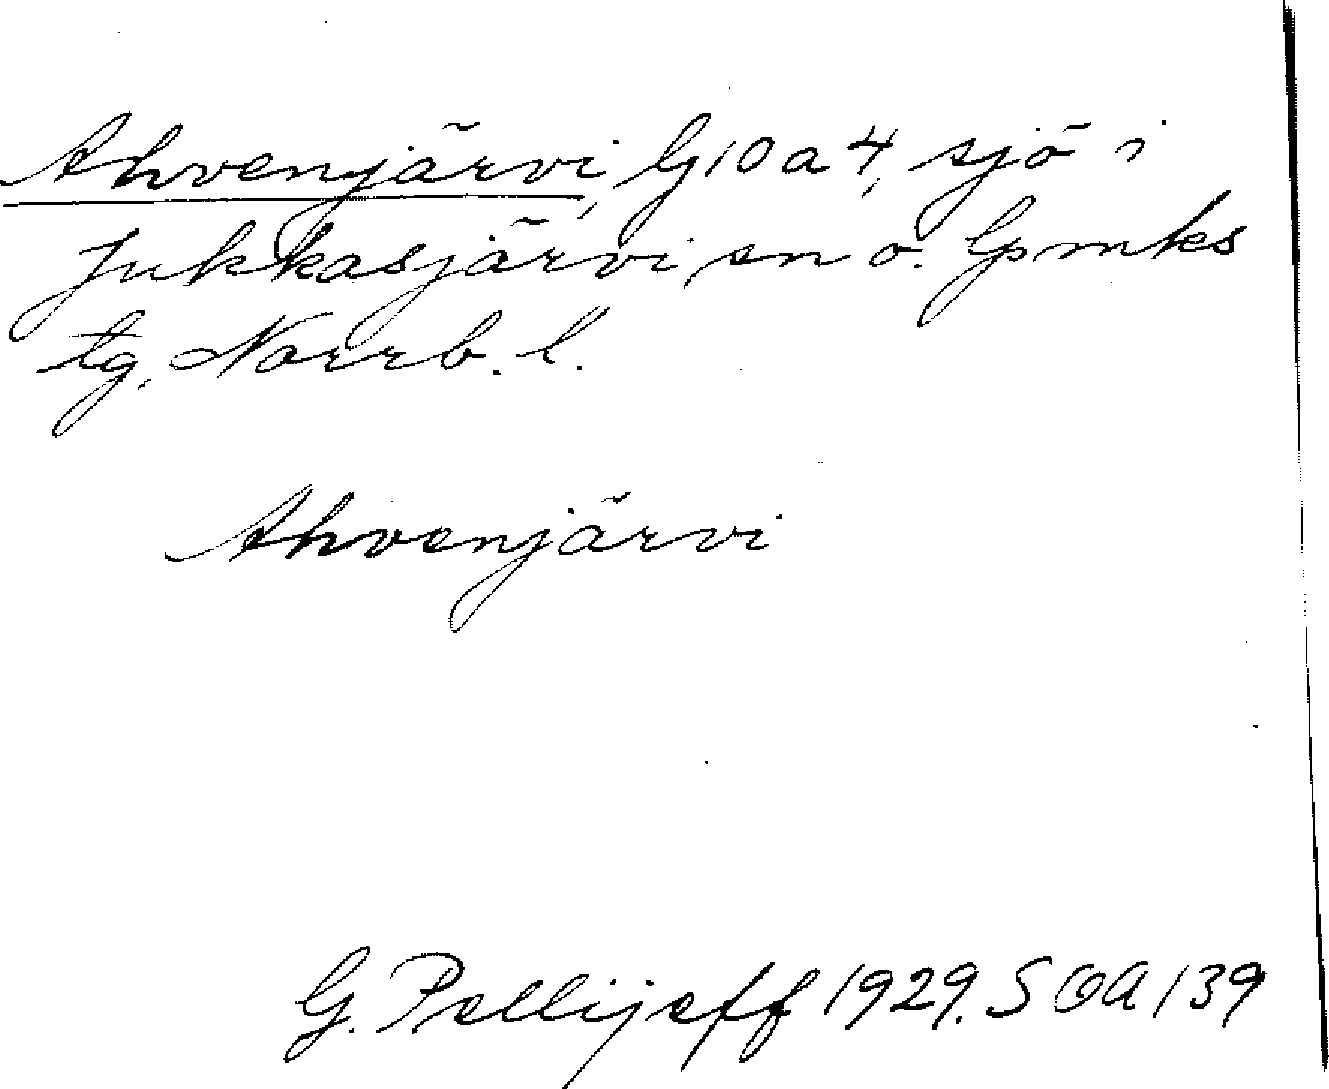 Ahvenjärvi, G10a4, sjö i
Jukkasjärvi sn o. lpmks
tg, Norrb. l.
Ahvenjärvi
G. Pellijeff 1929. SOA 139